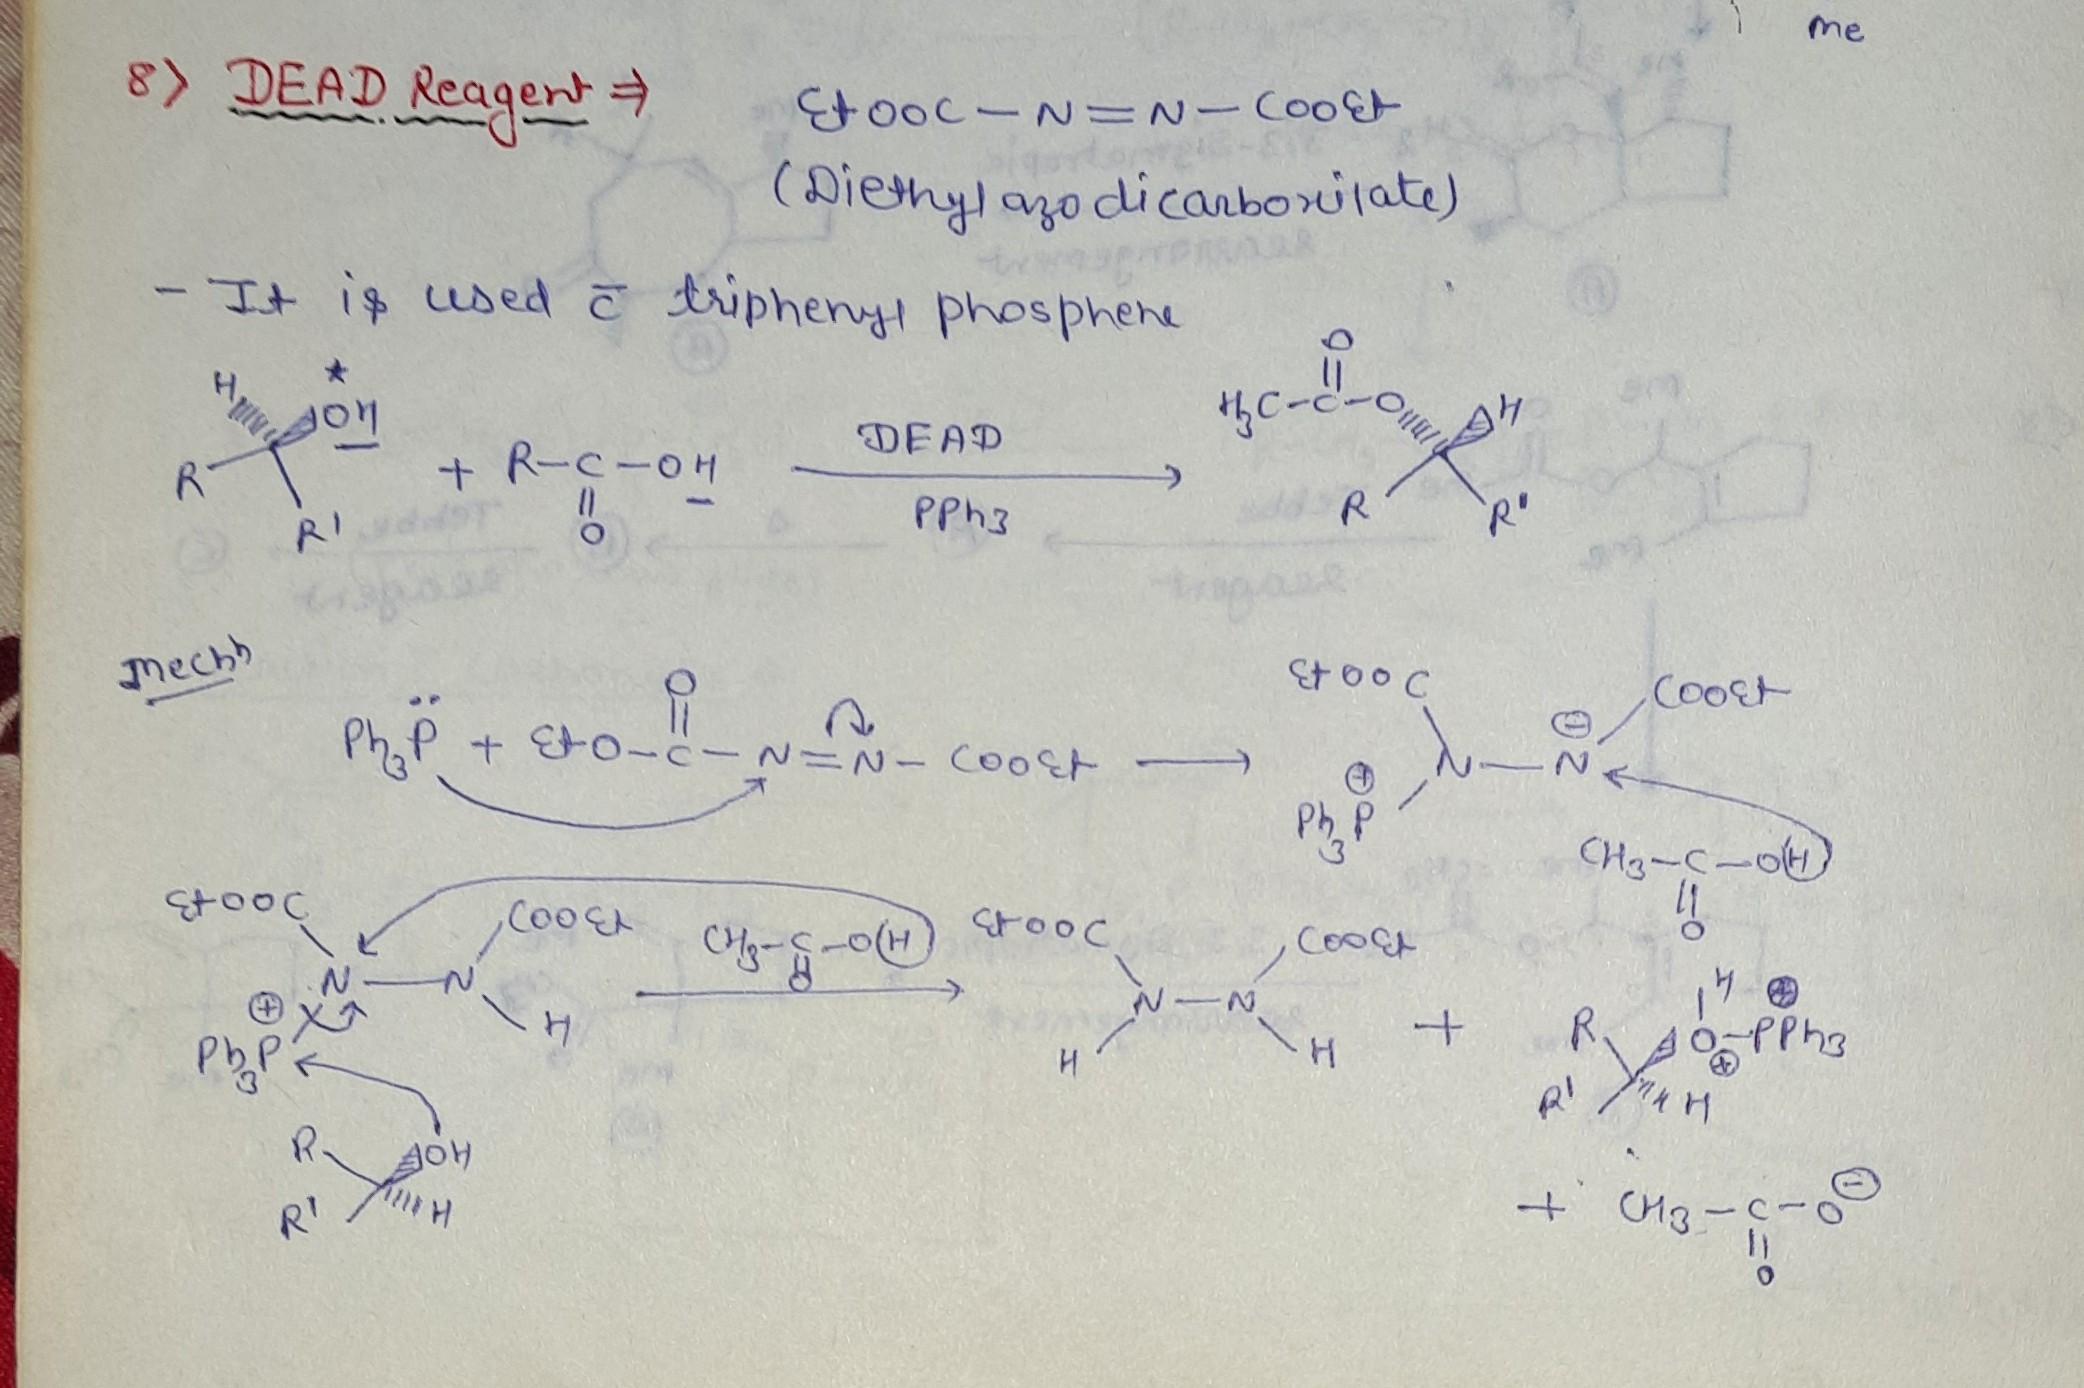 me
8) DEAD Reagent ⇒ EtOOC – N = N – COOEt
(Diethyl azodicarboxilate)
- It is used c̄ triphenyl phosphene
H * OH R R' + R–C–OH || O DEAD PPh3 → H3C–C–O O || H R R"
Mechn
Ph3P̈ + EtO–C–N=N–COOEt O || → EtOOC N–N ⊖ COOEt ⊕ Ph3P
CH3–C–O(H) || O
EtOOC N–N COOEt H ⊕ Ph3P CH3–C–O(H) || O → EtOOC N–N COOEt H H + R R' H O–PPh3 H ⊕ ⊕
R OH R' H
+ CH3–C–O⊖ || O